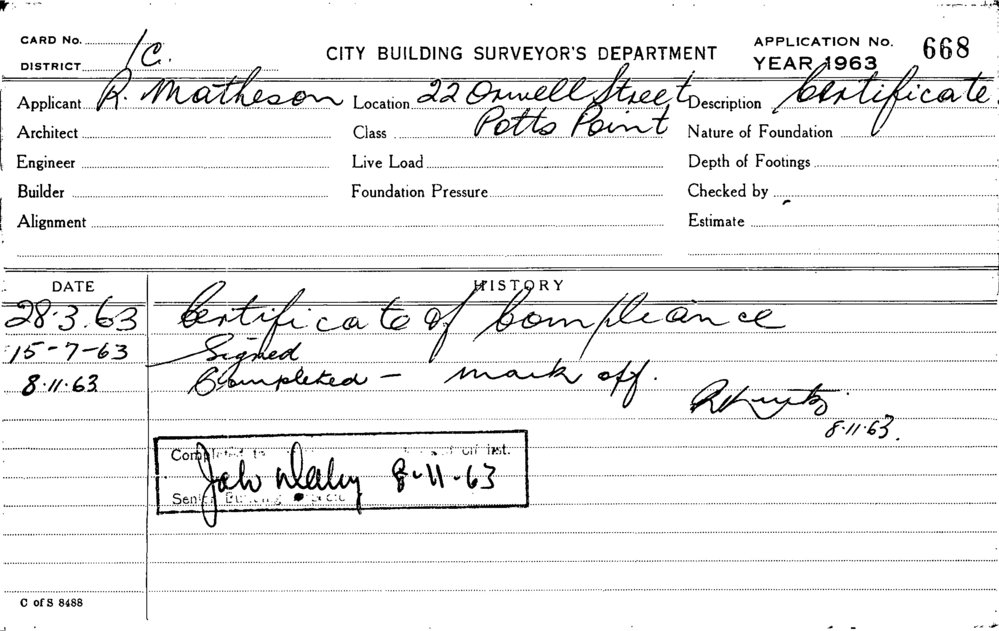 CARD No.
DISTRICT 1C.
CITY BUILDING SURVEYOR'S DEPARTMENT
APPLICATION No. 668
YEAR 1963
Applicant R. Matheson Location 22 Orwell Street Description Certificate
Architect Class Potts Point Nature of Foundation
Engineer Live Load Depth of Footings
Builder Foundation Pressure Checked by
Alignment Estimate
DATE HISTORY
28.3.63 Certificate of Compliance
15-7-63 Signed
8.11.63 Completed - mark off.
8.11.63.
Completed inst.
8-11-63
Senior Building
C of S 8488